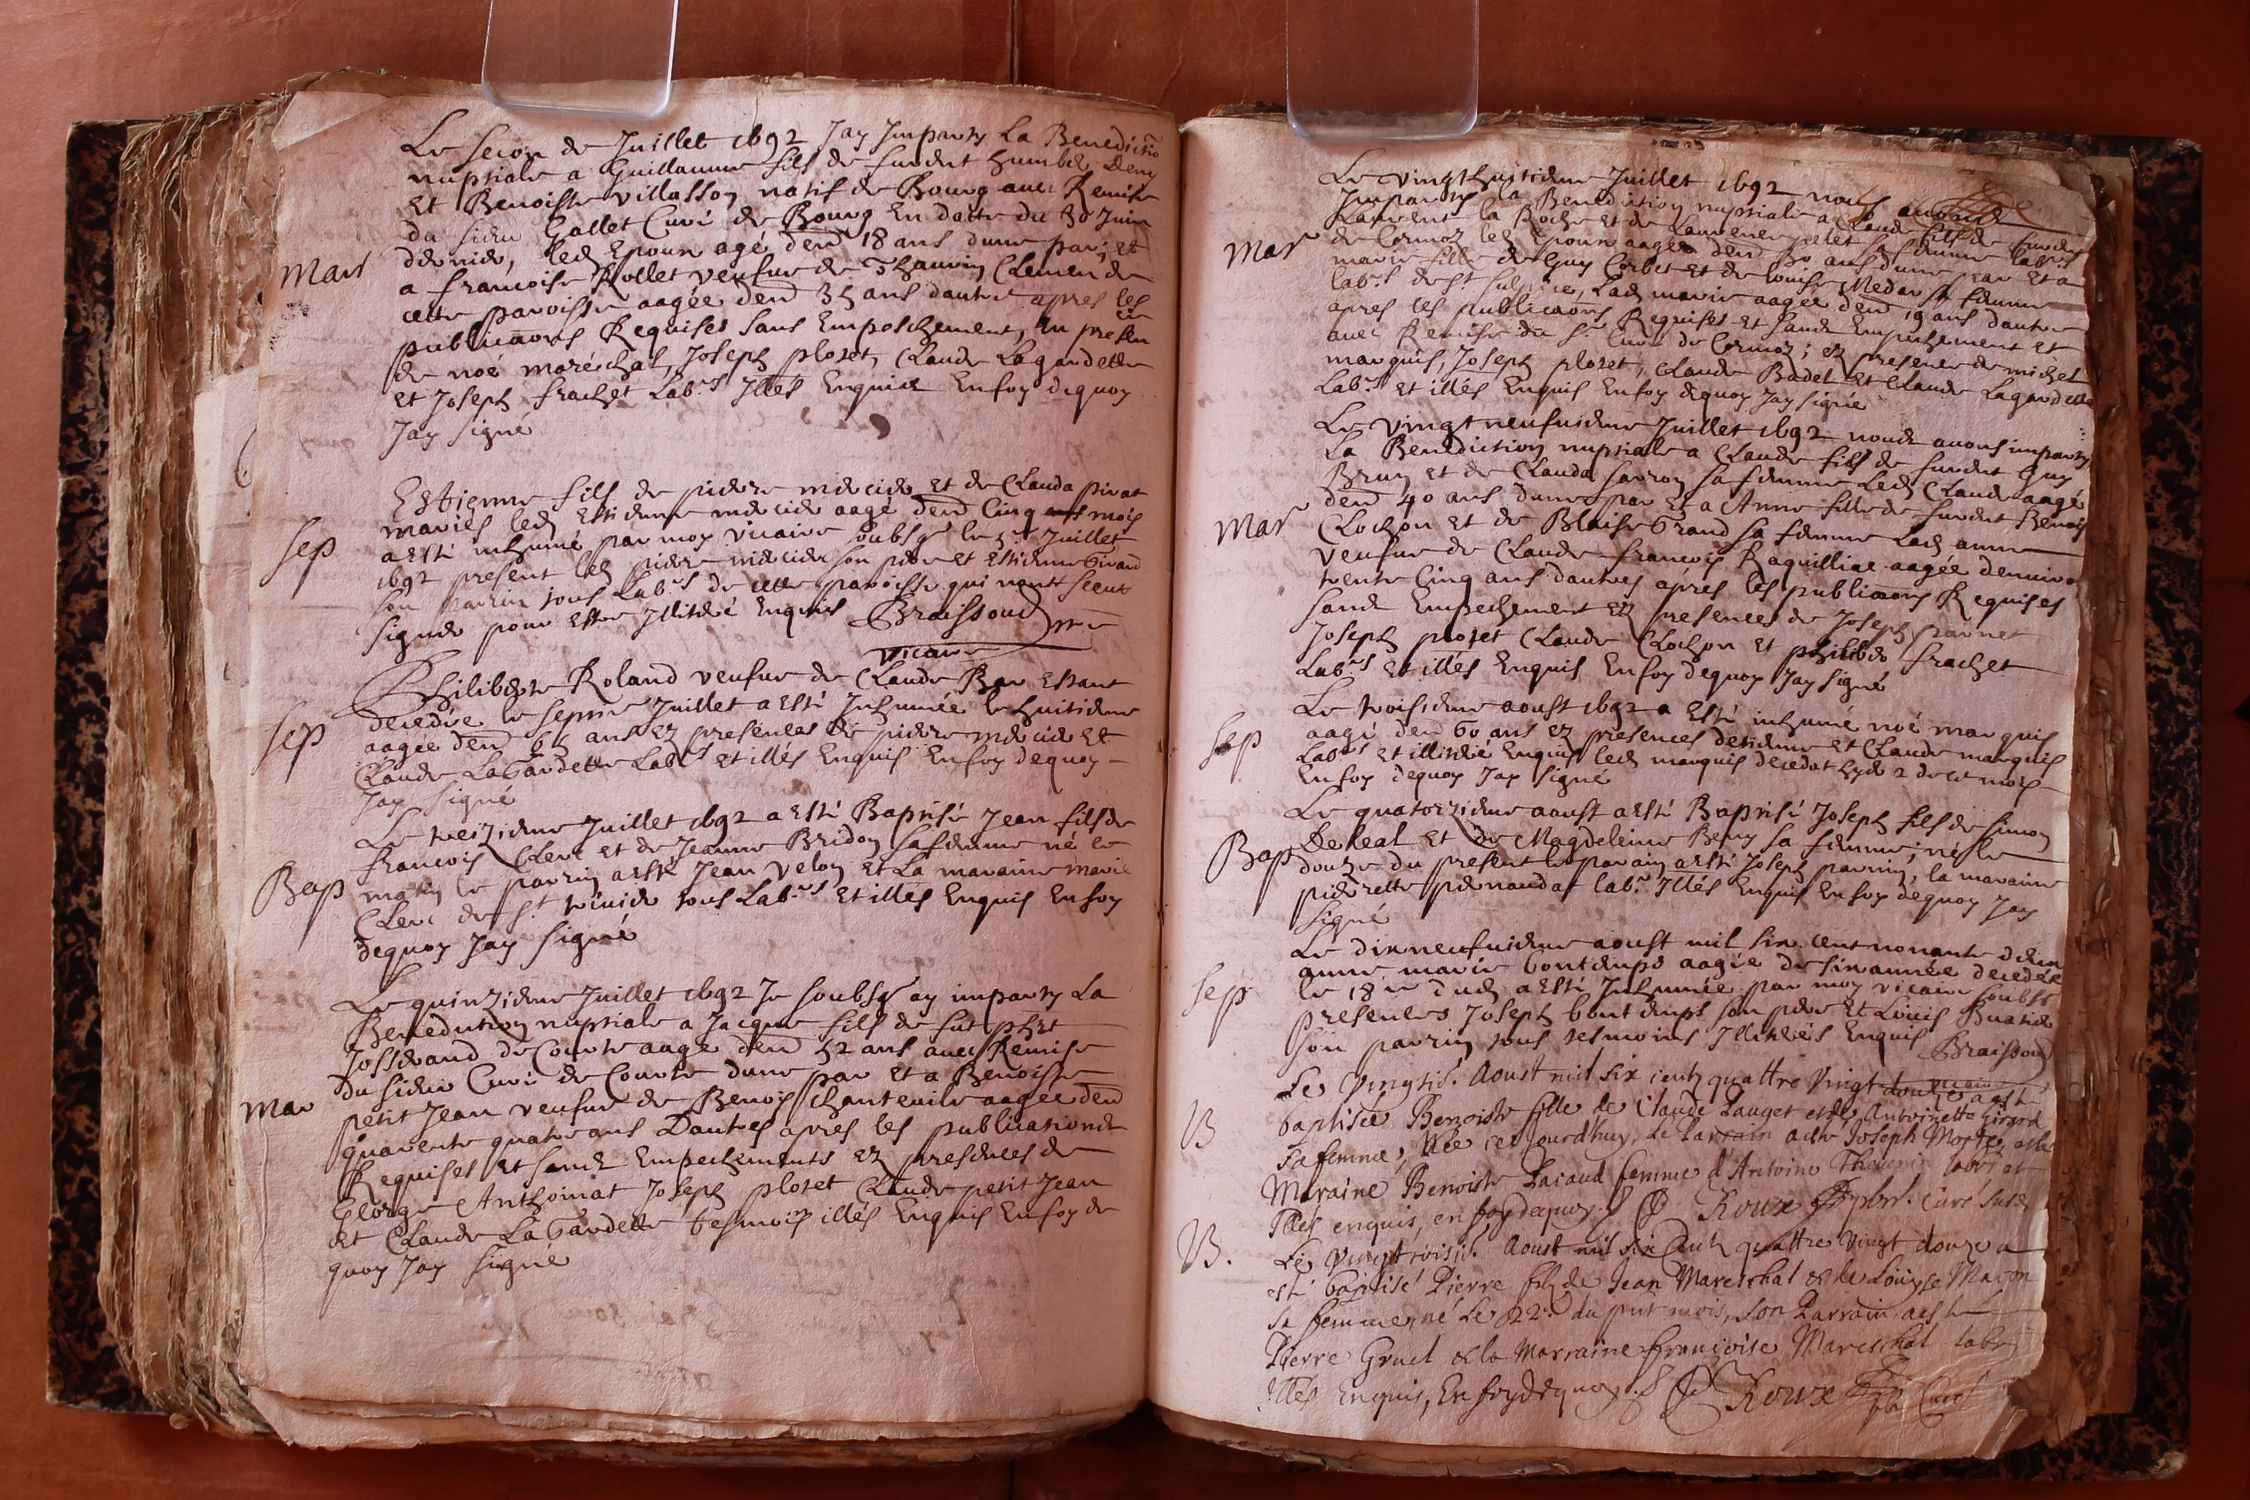 Le secon de Juillet 1692 Jay Imparty La Benedictio
nuptiale a Guillaume fils de fundit humbe Deny
Et Benoiste villasson natif de Bourg avec Remise
du sieur Gallet Curé de Bourg En datte du 30 Juin
dernier, led Epoux agé denv 18 ans dune par; et
Mar
a francoise Rollet veufue de Thauvin Clemen de
cette paroisse aagée denv 35 ans dautre apres les
publicaons Requises sans Empeschement, En presen ce
de noé maréschal, Joseph plotet, Claude Lagardette
et Joseph frachet Lab.rs Illés Enquis En foy dequoy
Jay signé
Estienne fils de pierre mercier et de Clauda pirat
mariés led Estienne mercier aagé denv Cinq mois
sep
a esté inhumé par moy vicaire soubsé le 5e Juillet
1692 present led pierre mercier son pere et Estienne Girard
son parrin tous Lab.rs de cette paroisse qui nont sceut
signer pour estre Illitéré Enquis Braissoud
vicaire
Philiberte Roland veufue de Claude Bar Estant
decedée le sepme Juillet a esté Inhumée le huitieme
sep
aagée denv 65 ans ez presences de pierre mercier et
Claude LaGardette Lab.rs et illés Enquis En foy dequoy
Jay signé
Le treizieme Juillet 1692 a esté Baptisé Jean fils de
francois Clerc et de Jeanne Bridon sa femme né le
Bap
matin le parrin a esté Jean Velon et La maraine marie
Clerc de St trivier tous Lab.rs et illés Enquis En foy
dequoy Jay signé
Le quinzieme Juillet 1692 Je soubsé ay imparty La
Benediction nuptiale a Jacque fils de fut phet
Josserand de Courte aagé denv 52 ans avec Remise
du sieur Curé de Courte dune par et a Benoiste
Mar
petit Jean veufue de Benoist Chanteuile aagée denv
quarente quatre ans Dautres apres les publications
Requises et sans Empechements ez presences de
George Anthoinat Joseph plotet Claude petit Jean
et Claude LaGardette tesmoins illés Enquis En foy de
quoy Jay signé
Le vingthuitieme Juillet 1692 nous avons
Imparty la Benediction nuptiale a Claude fils de fundit
Laurent la Roche et de Laurence pelet sa femme labrs
Mar
de Cormoz led Epoux aagé denv 30 ans dune par et a
marie fille de Guy Corbet et de louise Medar sa femme
lab.rs de St sulpice, Lad marie aagée denv 19 ans dautre
apres les publicaons Requises et sans Empechement et
avec Remise du Sr Curé de Cormoz; ez presence de michel
marquis, Joseph plotet, Claude Badet et Claude Lagardette
Lab.rs et illés Enquis En foy dequoy Jay signé
Le vingt neufuieme Juillet 1692 nous avons imparty
La Benediction nuptiale a Claude fils de fundit Guy
Brun et de Clauda sarron sa femme Led Claude aagé
Mar
denv 40 ans dune par et a Anne fille de fundit Benoist
Clochon et de Blaise Grand sa femme Lad anne
veufue de Claude francois Raquilliac aagée denviron
trente Cinq ans dautres apres les publicaons Requises
sans Empechement ez presences de Joseph
Joseph plotet Claude Clochon et philiber frachet
Lab.rs et illés Enquis En foy dequoy Jay signé
Le troisieme aoust 1692 a esté inhumé noé marquis
sep
aagé denv 60 ans ez presences destienne et Claude marquis
Lab.rs et illitéré Enquis led marquis decedat hyer 2 de ce mois
En foy dequoy Jay signé
Le quatorzieme aoust a esté Baptisé Joseph fils de simon
Bap
Deleal et de Magdeleine Beny sa femme; né le
douze du present le parain a esté Joseph parnin, la maraine
pierrette pernaudat lab.rs Illés Enquis En foy dequoy Jay
signé
Le dixneufuieme aoust mil six cent nonante deux
anne marie bontemps aagée de six année decedée
sep
le 18e dud a esté Inhumée par moy vicaire soubsé
presences Joseph bontemps son pere et Louis Buatier
son parrin tous tesmoins Illitérés Enquis Braissoud
vicaire
Le vingtie. Aoust mil six centz quattre vingt douze a esté
B
baptisée Benoiste fille de Claude Lauget et de Antoinette Girard
sa femme, Née ce jourdhuy, le parrain a esté Joseph Morte, et la
Maraine Benoiste Laiaud femme d'Antoine Thevenin labrs et
Illés enquis, en foy dequoy. Roux pbre. Curé susd
B.
Le vingtroisie. Aoust mil six Centz quattre vingt douze a
esté baptisé Pierre filz de Jean Mareschal & de Louyse Maron
sa femme, né le 22e du pnt mois, son Parrain a esté
Pierre Gruel & la Marraine francoise Mareschal labrs
Illés enquis, En foy dequoy. Roux pbr Curé